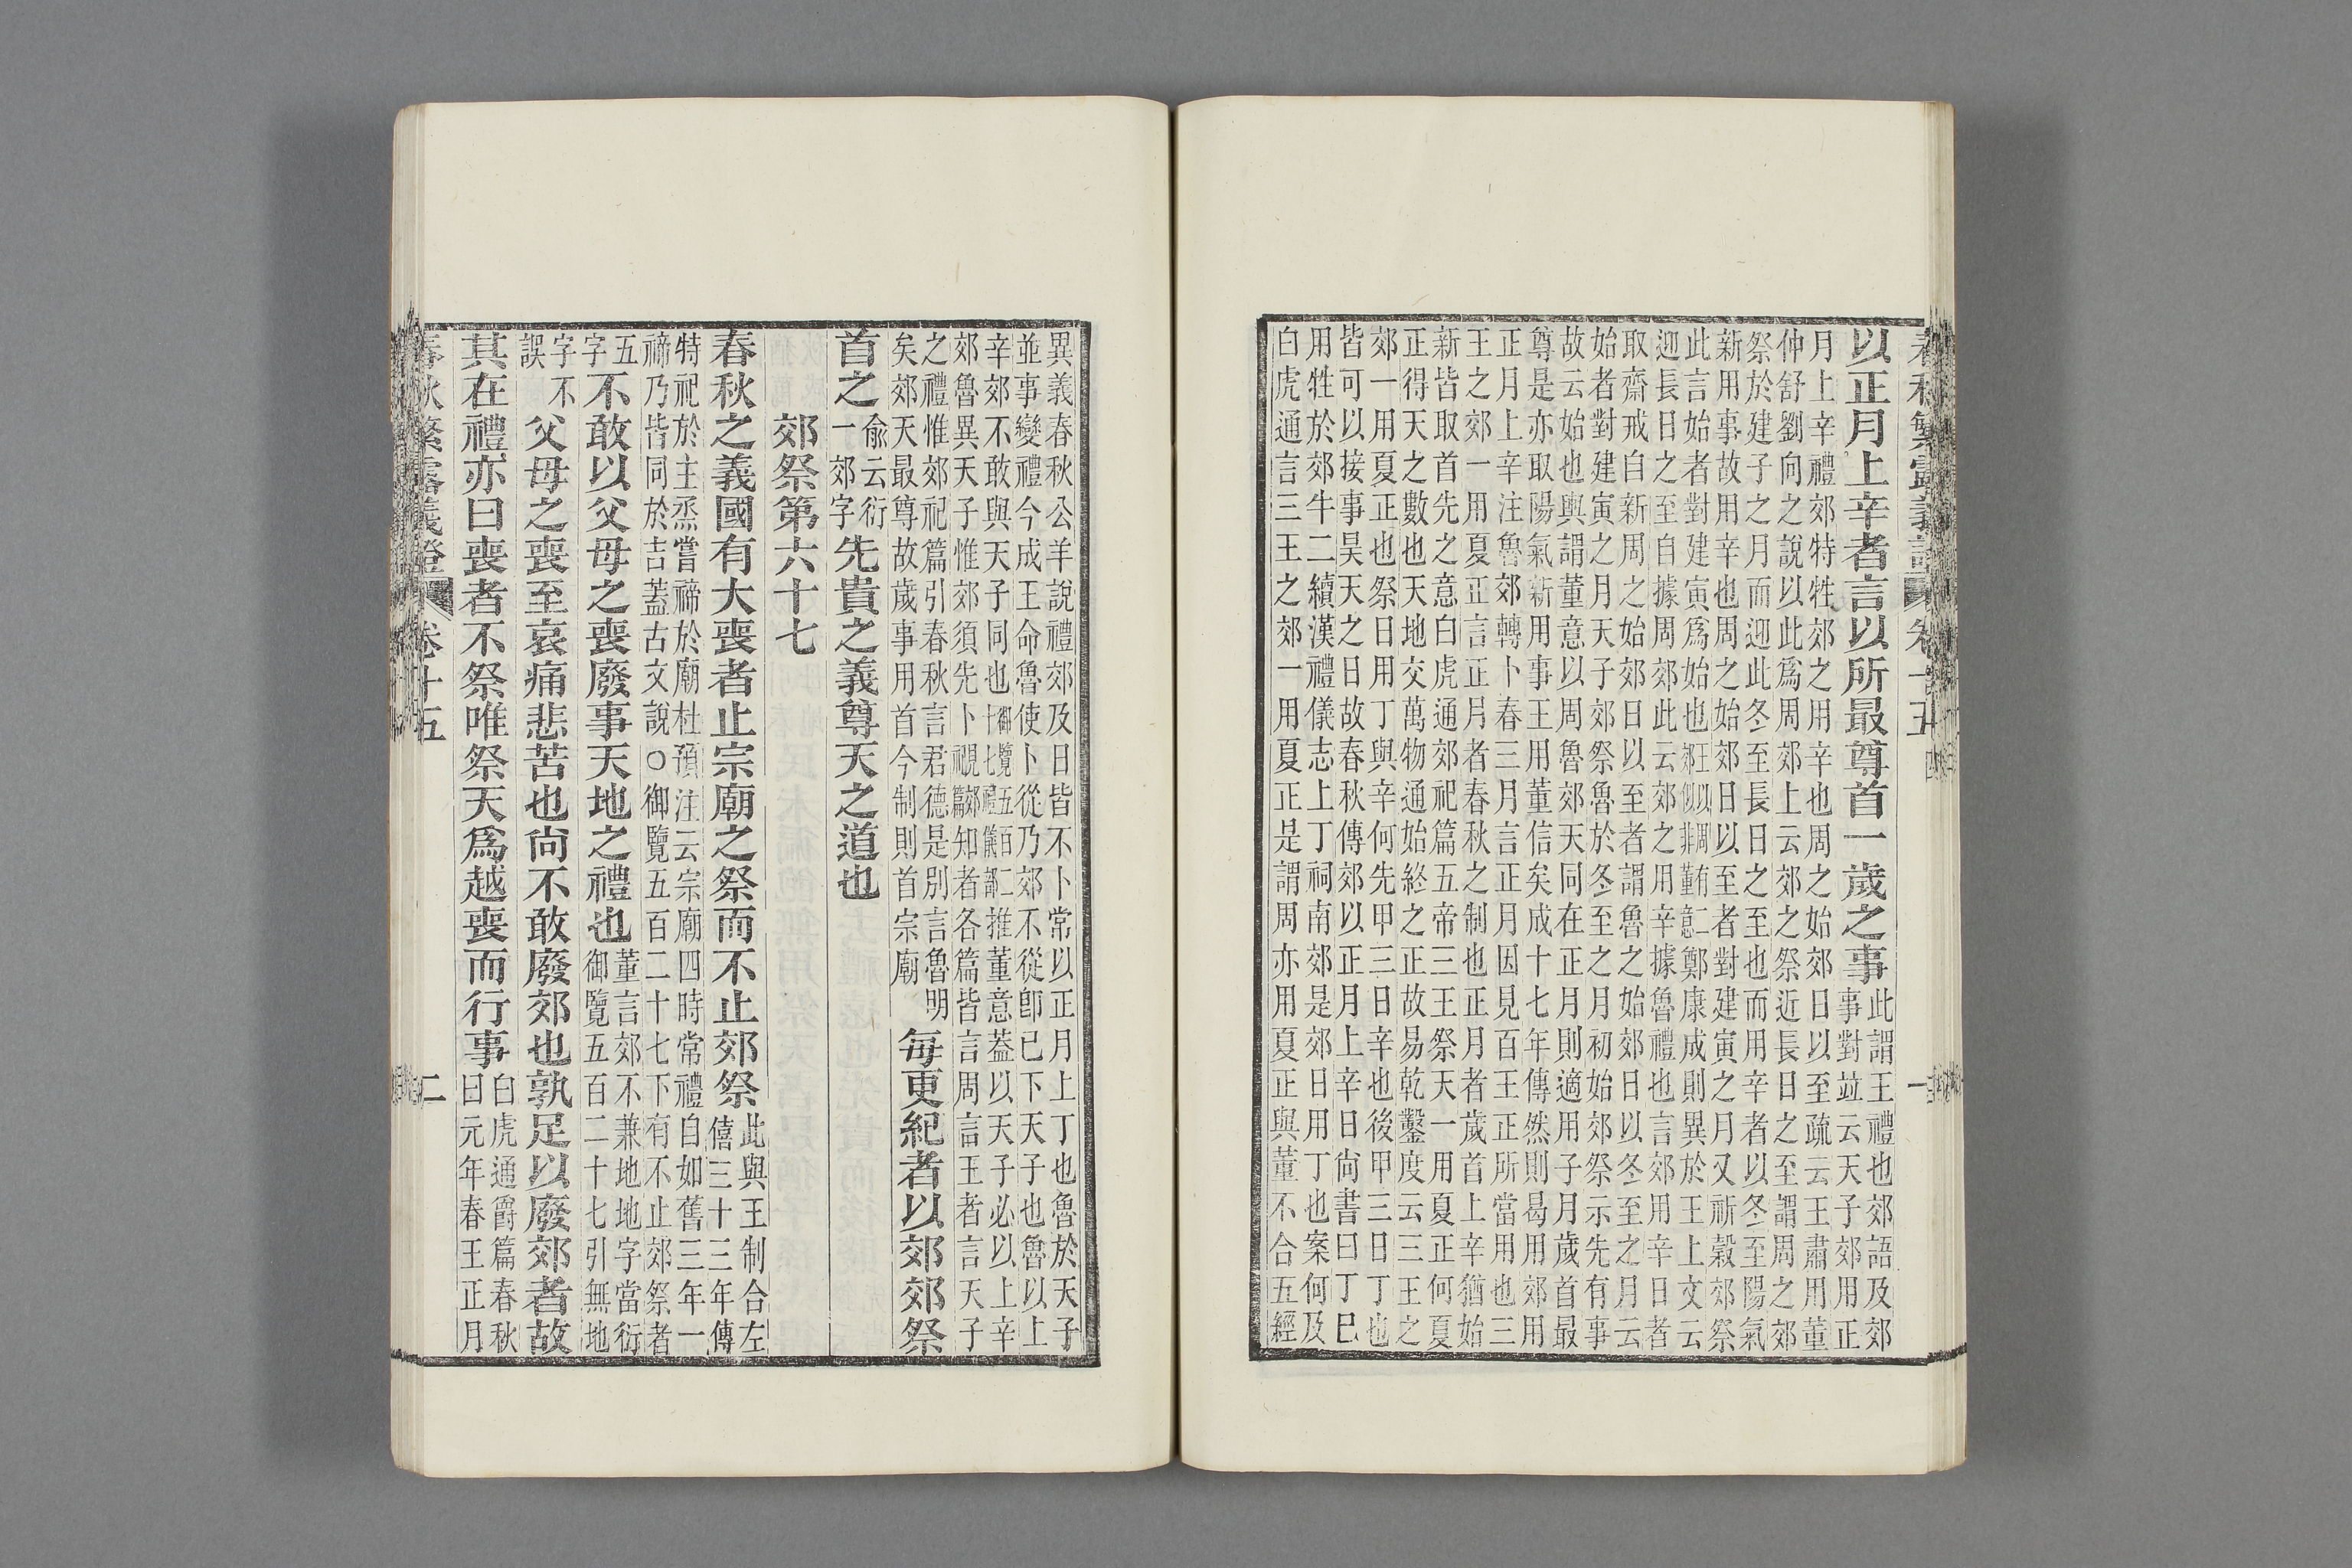 春秋繁露義證 卷十五 一
以正月上辛者言以所最尊首一歲之事
此謂王禮也郊語及郊
事對竝云天子郊用正
月上辛禮郊特牲郊之用辛也周之始郊日以至疏云王肅用董
仲舒劉向之說以此爲周郊上云郊之祭近長日之至謂周之郊
祭於建子之月而迎此冬至長日之至也而用辛者以冬至陽氣
新用事故用辛也周之始郊日以至者對建寅之月又祈穀郊祭
此言始者對建寅爲始也鄭康成則異於王上文云
迎長日之至自據周郊此云郊之用辛據魯禮也言郊用辛日者
取齋戒自新周之始郊日以至者謂魯之始郊日以冬至之月云
始者對建寅之月天子郊祭魯於冬至之月初始郊祭示先有事
故云始也輿謂董意以周魯郊天同在正月則適用子月歲首最
尊是亦取陽氣新用事王用董信矣成十七年傳然則曷用郊用
正月上辛注魯郊轉卜春三月言正月因見百王正所當用也三
王之郊一用夏正言正月者春秋之制也正月者歲首上辛猶始
新皆取首先之意白虎通郊祀篇五帝三王祭天一用夏正何夏
正得天之數也天地交萬物通始終之正故易乾鑿度云三王之
郊一用夏正也祭日用丁與辛何先甲三日辛也後甲三日丁也
皆可以接事昊天之日故春秋傳郊以正月上辛日尚書曰丁巳
用牲於郊牛二續漢禮儀志上丁祠南郊是郊日用丁也案何及
白虎通言三王之郊一用夏正是謂周亦用夏正與董不合五經
異義春秋公羊說禮郊及日皆不卜常以正月上丁也魯於天子
並事變禮今成王命魯使卜從乃郊不從卽已下天子也魯以上
辛郊不敢與天子同也御覽五百二十七禮儀部推董意蓋以天子必以上辛
郊魯異天子惟郊須先卜視郊篇知者各篇皆言周言王者言天子
之禮惟郊祀篇引春秋言君德是別言魯明
矣郊天最尊故歲事用首今制則首宗廟
每更紀者以郊郊祭
首之俞云衍一郊字先貴之義尊天之道也
郊祭第六十七
春秋之義國有大喪者止宗廟之祭而不止郊祭
此與王制合左
僖三十三年傳
特祀於主烝嘗禘於廟杜預注云宗廟四時常禮自如舊三年一
禘乃皆同於吉蓋古文說○御覽五百二十七下有不止郊祭者
五
字
不敢以父母之喪廢事天地之禮也
董言郊不兼地地字當衍
御覽五百二十七引無地
字不
誤
父母之喪至哀痛悲苦也尚不敢廢郊也孰足以廢郊者故
其在禮亦曰喪者不祭唯祭天爲越喪而行事
白虎通爵篇春秋
曰元年春王正月
春秋繁露義證 卷十五 二